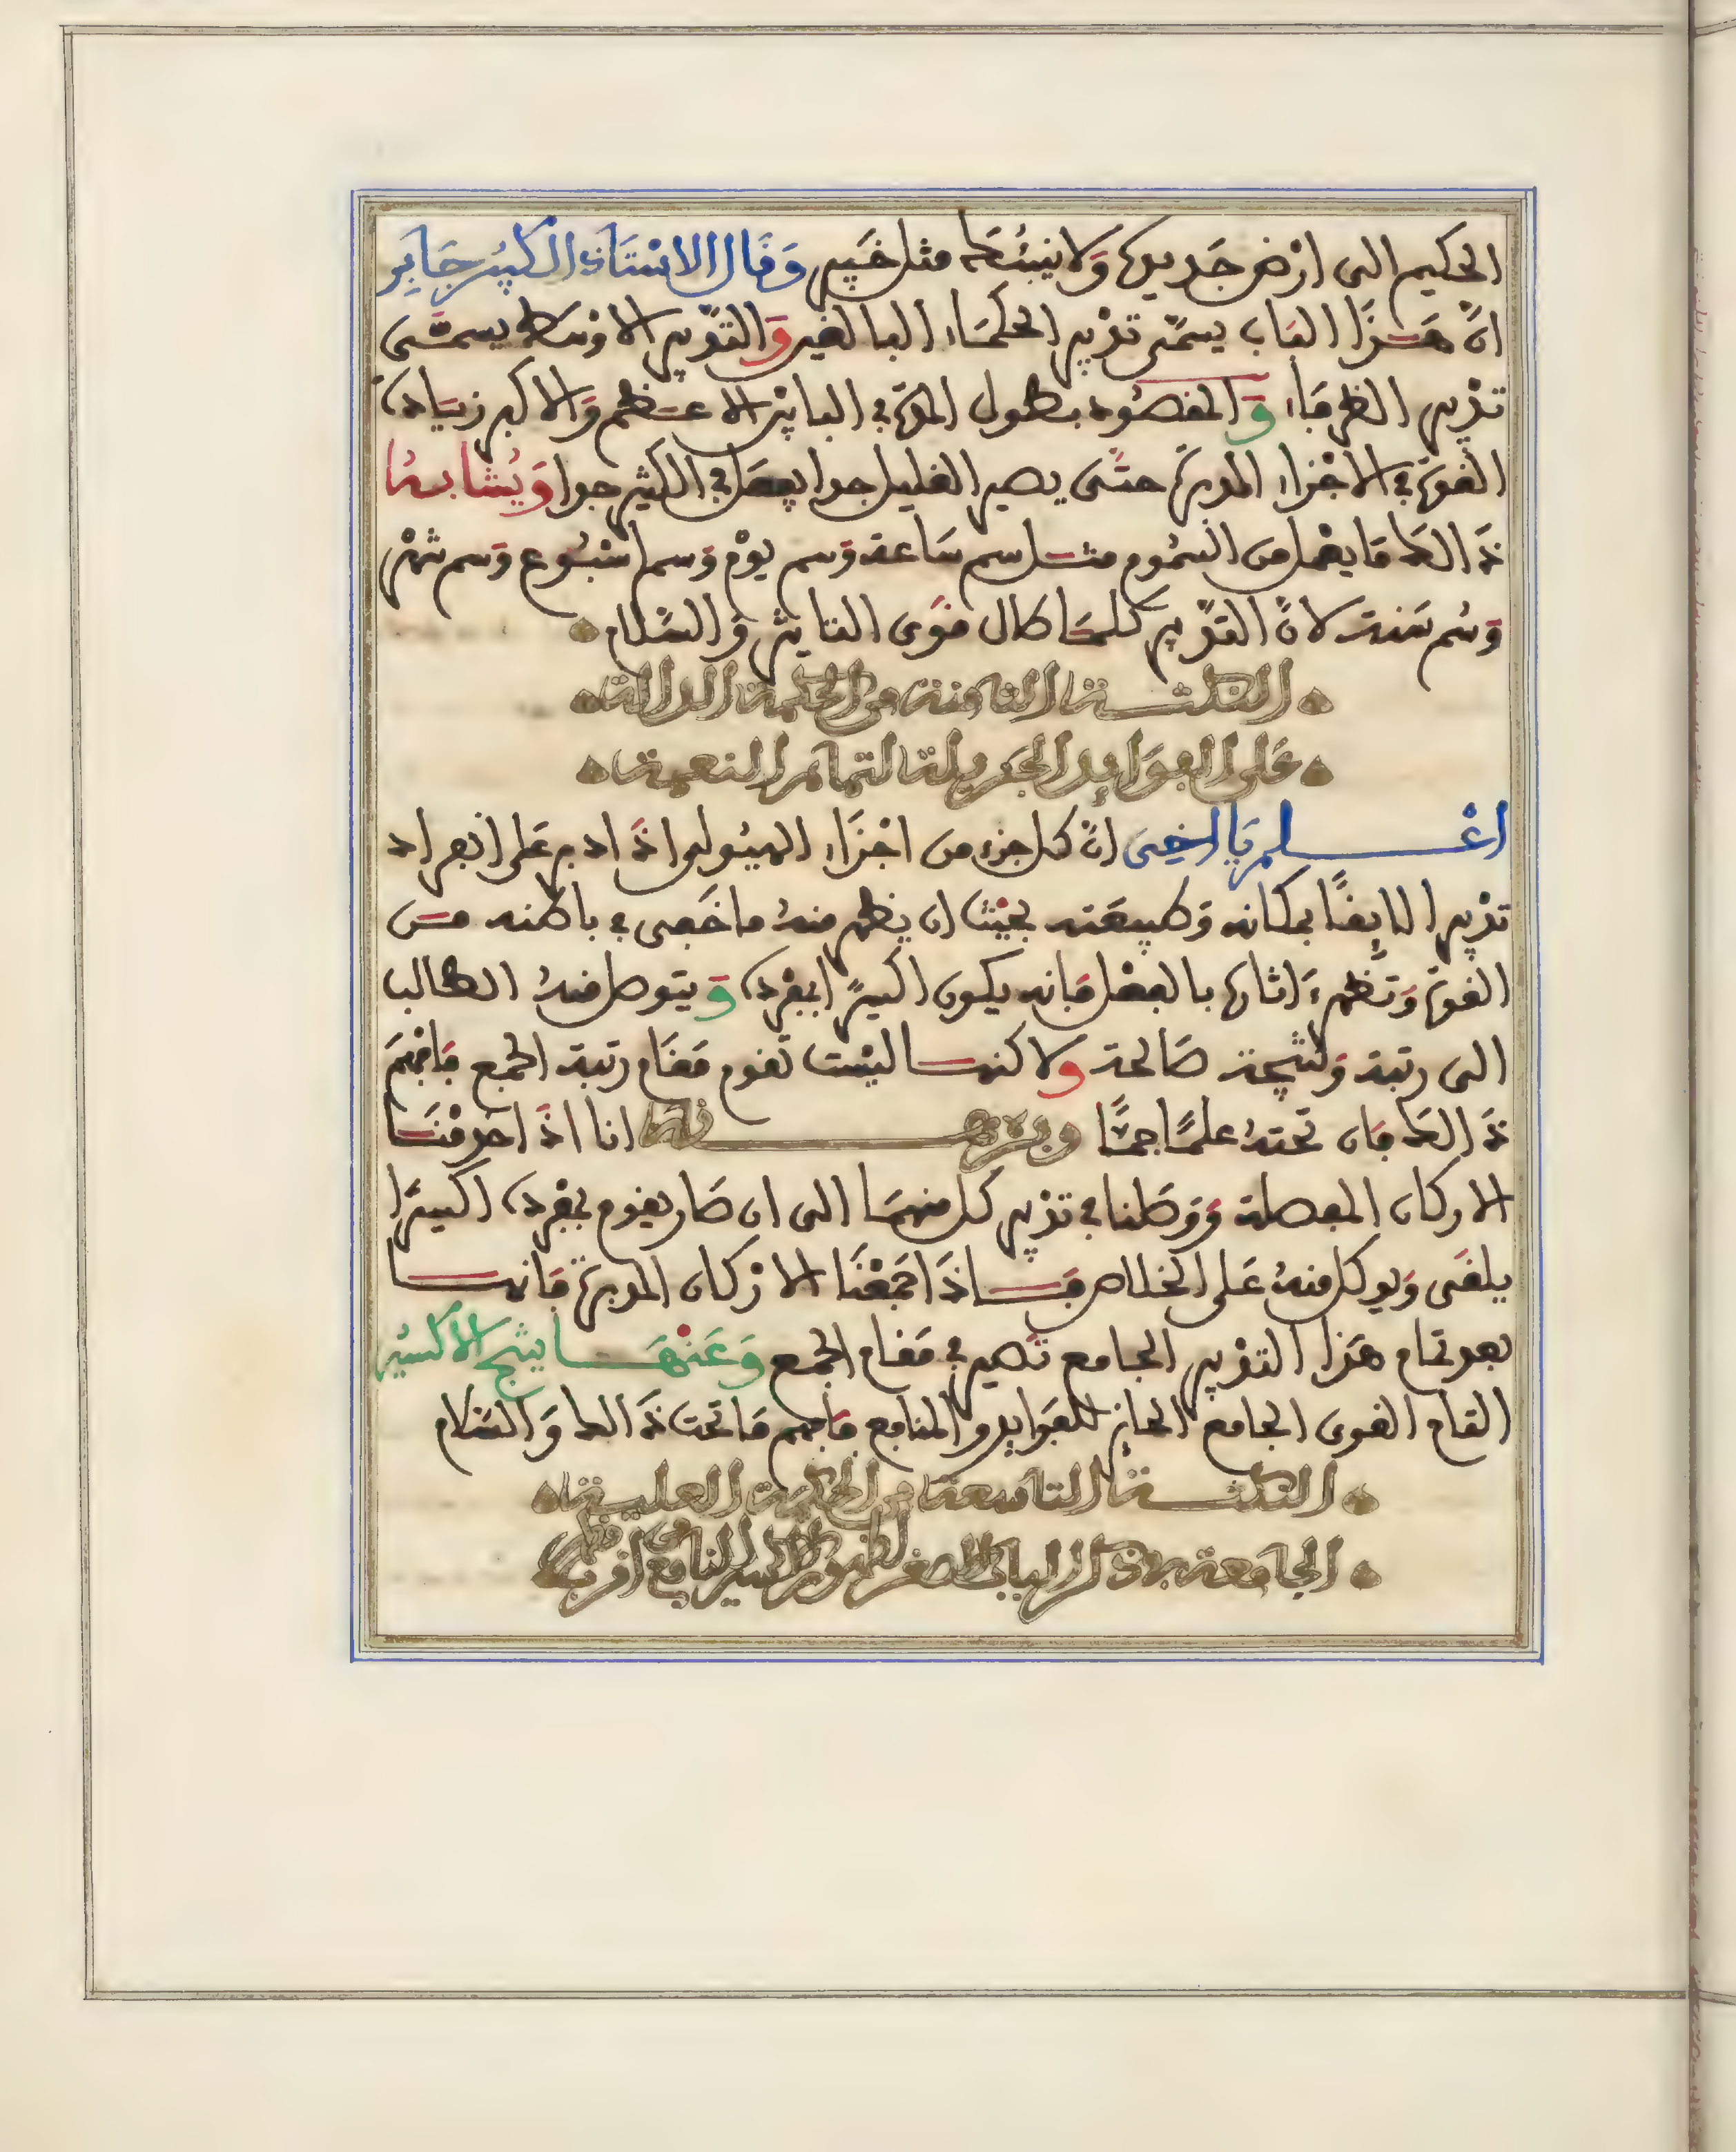 الحكيم الى ارض جديدة ولا ينبئك مثل خبير وقال الاستاذ الكبير جابر
ان هذا الباب يسمى تدبير الحكماء البالغين والتدبير الاوسط يسمى
تدبير الظرفاء والمقصود بطول المدة في البابين الاعظم والاكبر زيادة
القوة في الاجزاء المدبرة حتى يصير القليل جدا يفعل في الكثير جدا ويشابه
ذالك ما يعمل من السموم مثل سم ساعة وسم يوم وسم اسبوع وسم شهر
وسم سنة لان التدبير كلما طال قوى التاثير والسلام
النكتة الثامنة من الحكمة الدالة
على الفوايد الجزيلة لتمام النعمة
اعلم يا اخى ان كل جزء من اجزاء الهيولى اذا دبر على انفراد
تدبيرا لايقا بمكانه وطبيعته بحيث ان يظهر منه ما خفى في باطنه من
القوة وتظهر ءاثارها بالفعل فانه يكون اكسيرا بمفرده ويتوصل منه الطالب
الى رتبة ونتيجة صالحة ولاكنها ليست تقوم مقام رتبة الجمع فافهم
ذالك فان تحته علما جما وبرهانه انا اذا اخذنا
الاركان المفصلة ووصلنا في تدبير كل منها الى ان صار يقوم بمفرده اكسيرا
يلقى ويوكل منه على الخلاص فاذا جمعنا الاركان المدبرة فانها
بعد تمام هذا التدبير الجامع تصير في مقام الجمع وعنها ينتج الاكسير
التام القوى الجامع الحايز للفوايد والمنافع فافهم ما تحت ذالك والسلام
النكتة التاسعة من الحكمة العلية
الجامعة بذكر الباب الاصغر لظهور الاكسير النافع من اقرب